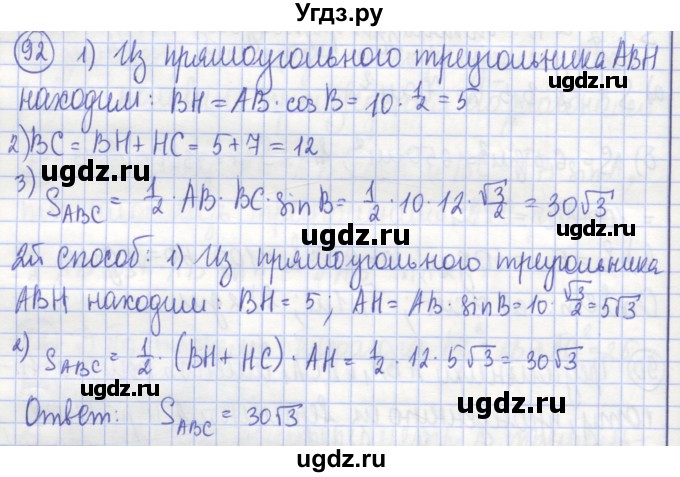 Угдз.ру
92 1) Из прямоугольного треугольника ABH
находим: BH = AB · cos B = 10 · 1/2 = 5
ugdz.ru ugdz.ru
2) BC = BH + HC = 5 + 7 = 12
ugdz.ru
3) S_ABC = 1/2 · AB · BC · sin B = 1/2 · 10 · 12 · √3/2 = 30√3
ugdz.ru ugdz.ru
2й способ: 1) Из прямоугольного треугольника
ugdz.ru
ABH находим: BH = 5; AH = AB · sin B = 10 · √3/2 = 5√3
ugdz.ru ugdz.ru
2) S_ABC = 1/2 · (BH + HC) · AH = 1/2 · 12 · 5√3 = 30√3
ugdz.ru
Ответ: S_ABC = 30√3
ugdz.ru ugdz.ru
ugdz.ru